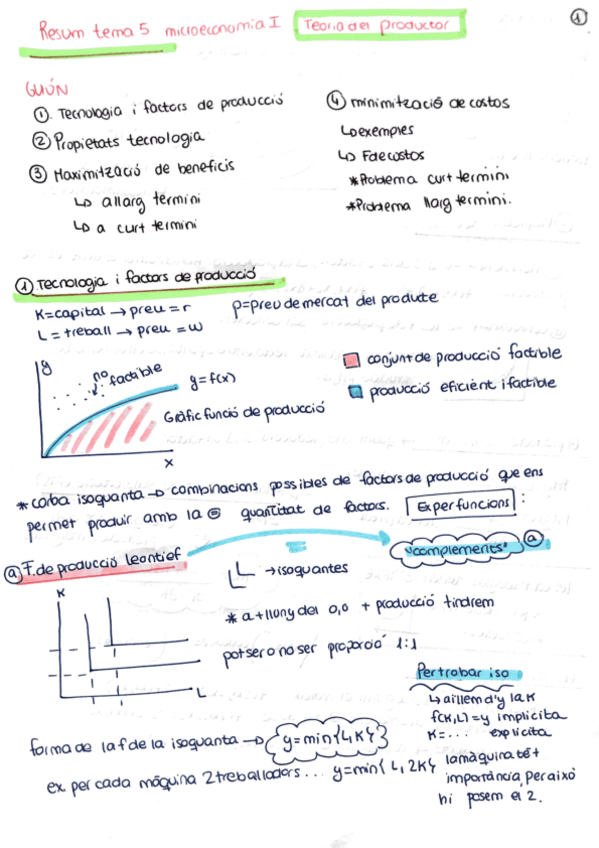 Resum tema 5 microeconomia I Teoria del productor
1
GUIÓN
1. Tecnologia i factors de producció
2 Propietats tecnologia
3 Maximització de beneficis
↳ a llarg termini
↳ a curt termini
4 minimització de costos
↳ exemples
↳ F de costos
* Problema curt termini
* Problema llarg termini.
1 Tecnologia i factors de producció
K = capital → preu = r
L = treball → preu = w
p = preu de mercat del producte
y
no factible
y = f(x)
Gràfic funció de producció
x
conjunt de producció factible
producció eficient i factible
* corba isoquanta → combinacions possibles de factors de producció que ens
permet produir amb la = quantitat de factors. Ex per funcions :
a F. de producció leontief
"complements" a
K
L
→ isoquantes
* a + lluny del 0,0 + producció tindrem
pot ser o no ser proporció 1:1
Per trobar iso
↳ aïllem d'y la K
f(K,L) = y implícita
K = ... explícita
forma de la f de la isoquanta → y = min{L,K}
ex per cada màquina 2 treballadors... y = min{L, 2K} la màquina té +
importància, per això
hi posem el 2.